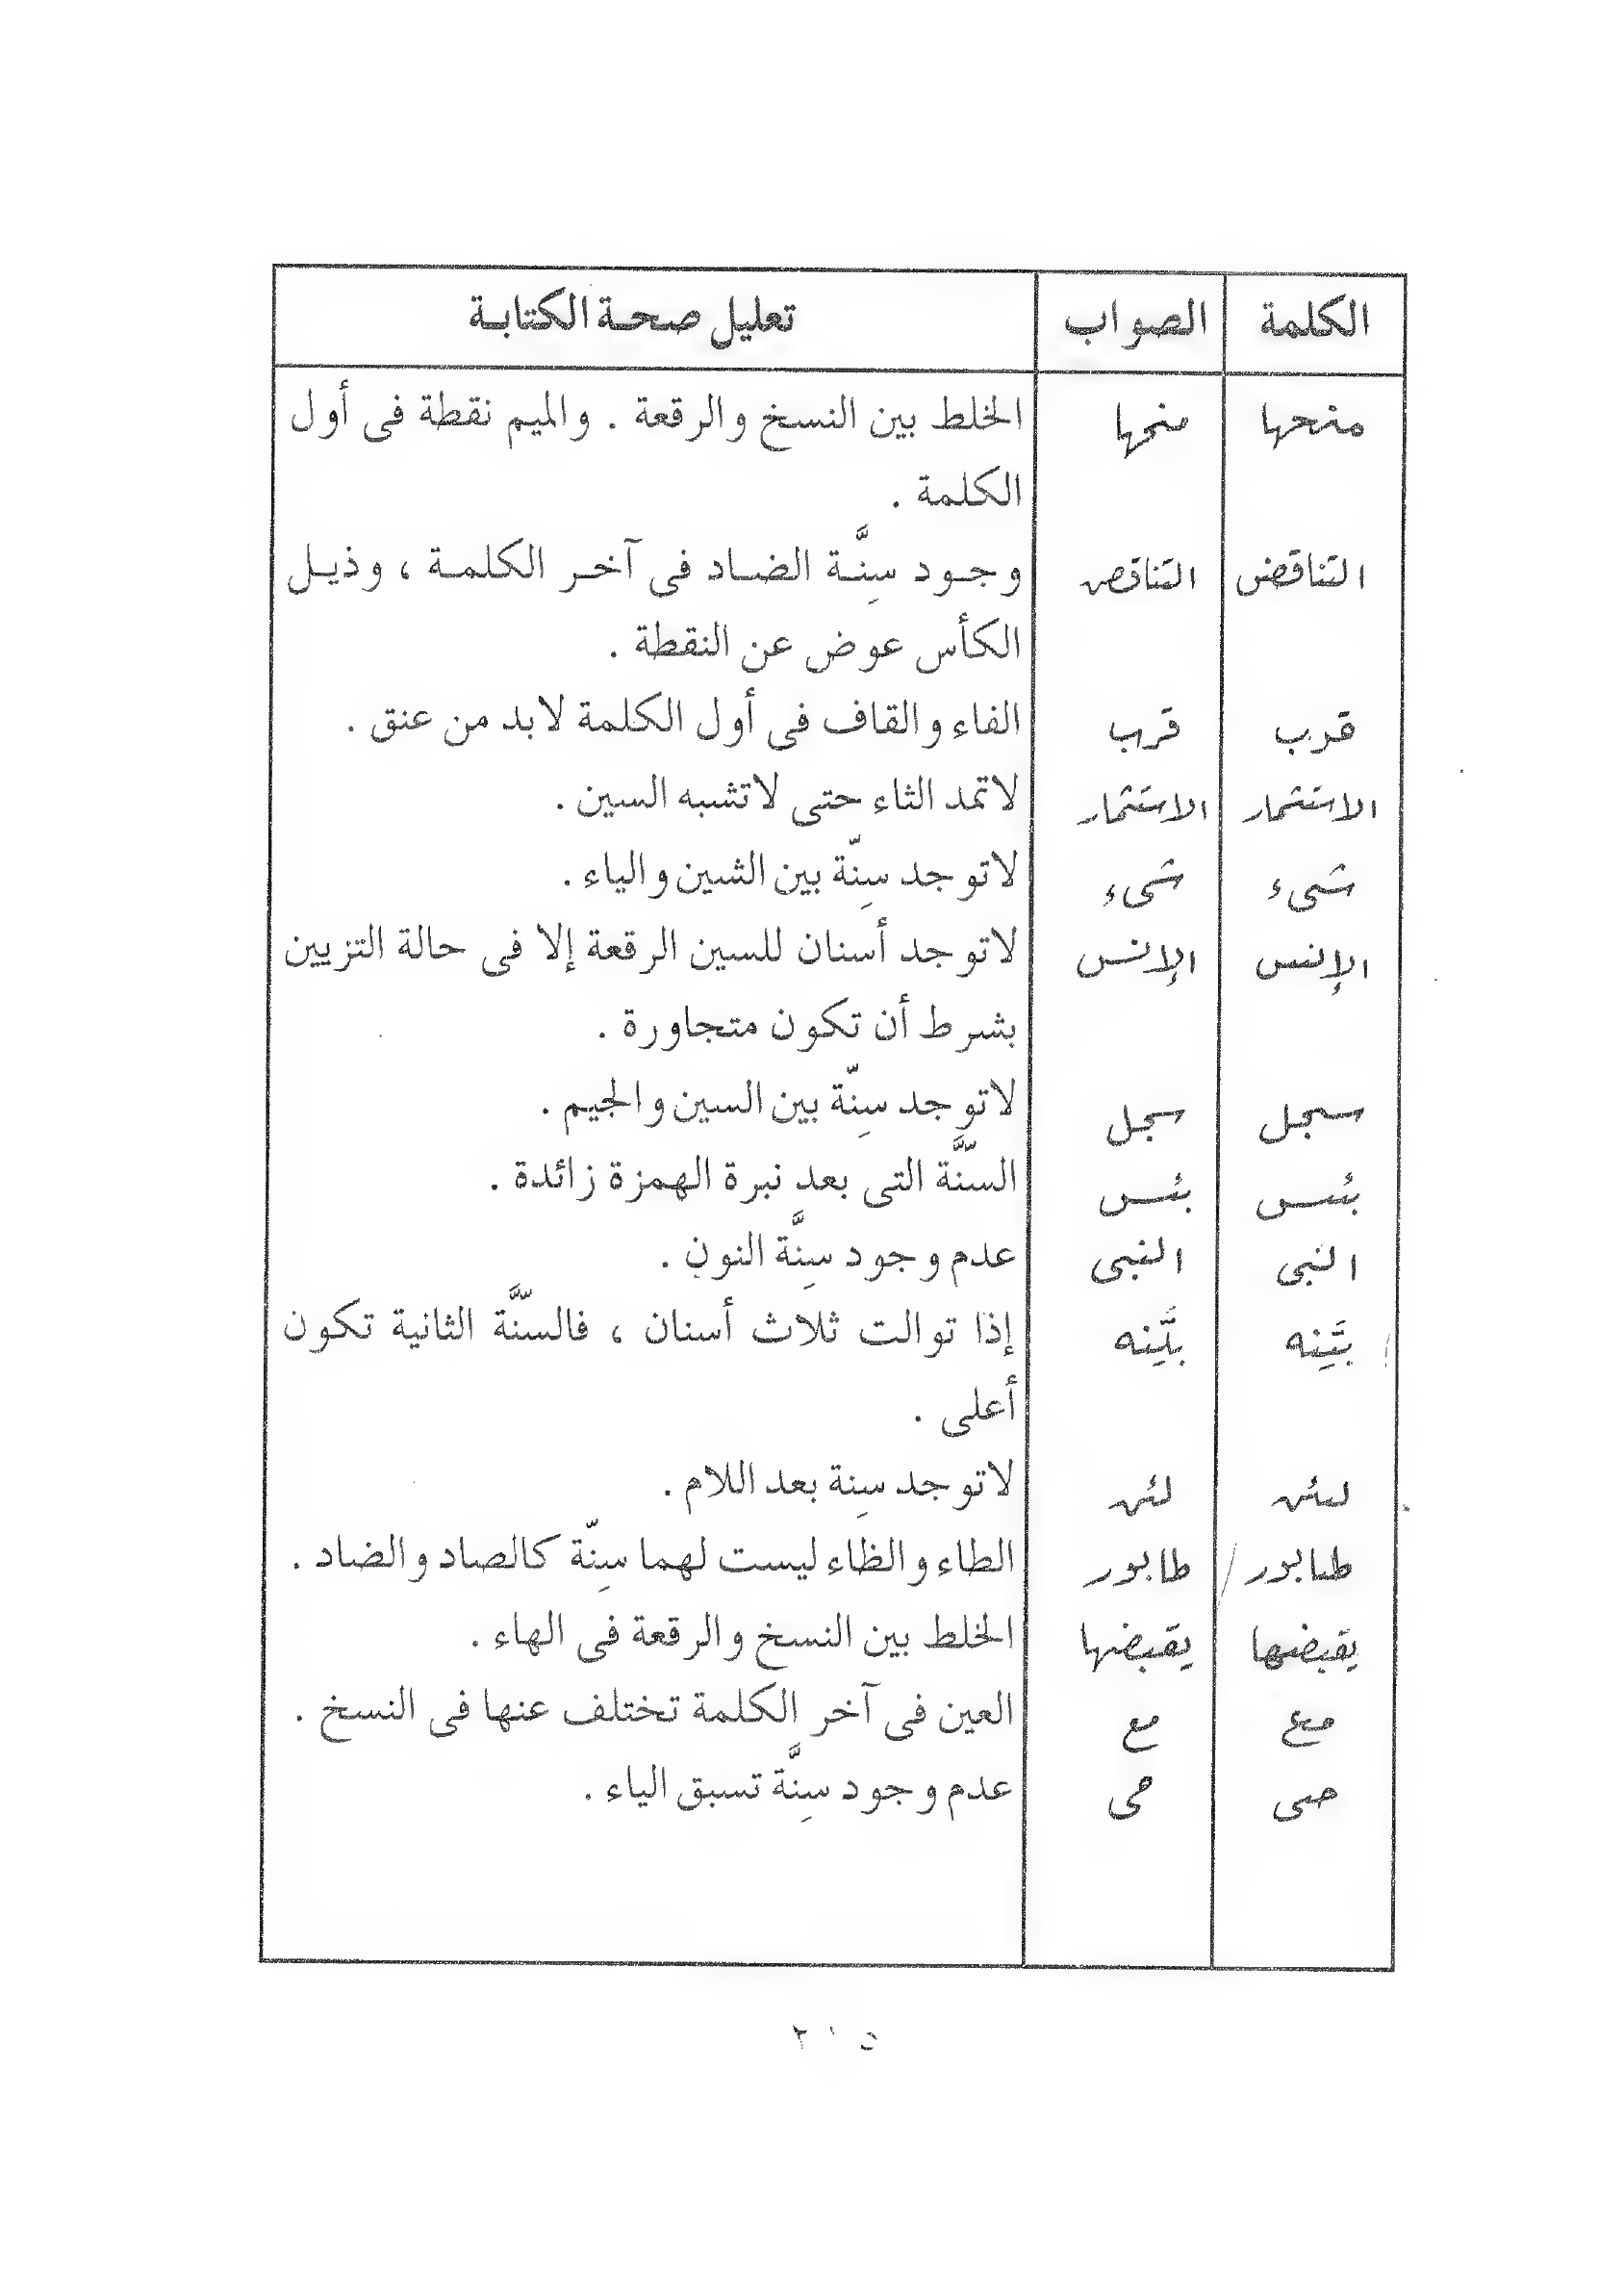 الكلمة الصواب تعليل صحة الكتابة
منحها منحها الخلط بين النسخ والرقعة . والميم نقطة فى أول
الكلمة .
التناقض التناقض وجود سِنَّة الضاد فى آخر الكلمة ، وذيل
الكأس عوض عن النقطة .
قرب قرب الفاء والقاف فى أول الكلمة لابد من عنق .
الاستثمار الاستثمار لاتمد الثاء حتى لاتشبه السين .
شىء شىء لاتوجد سِنّة بين الشين والياء .
الإنس الإنس لاتوجد أسنان للسين الرقعة إلا فى حالة التزيين
بشرط أن تكون متجاورة .
سجل سجل لاتوجد سِنّة بين السين والجيم .
بئس بئس السّنَّة التى بعد نبرة الهمزة زائدة .
النبى النبى عدم وجود سِنَّة النون .
بيَّنِه بيَّنِه إذا توالت ثلاث أسنان ، فالسّنَّة الثانية تكون
أعلى .
لئن لئن لاتوجد سِنة بعد اللام .
طابور طابور الطاء والظاء ليست لهما سِنّة كالصاد والضاد .
يقبضها يقبضها الخلط بين النسخ والرقعة فى الهاء .
مع مع العين فى آخر الكلمة تختلف عنها فى النسخ .
حى حى عدم وجود سِنَّة تسبق الياء .